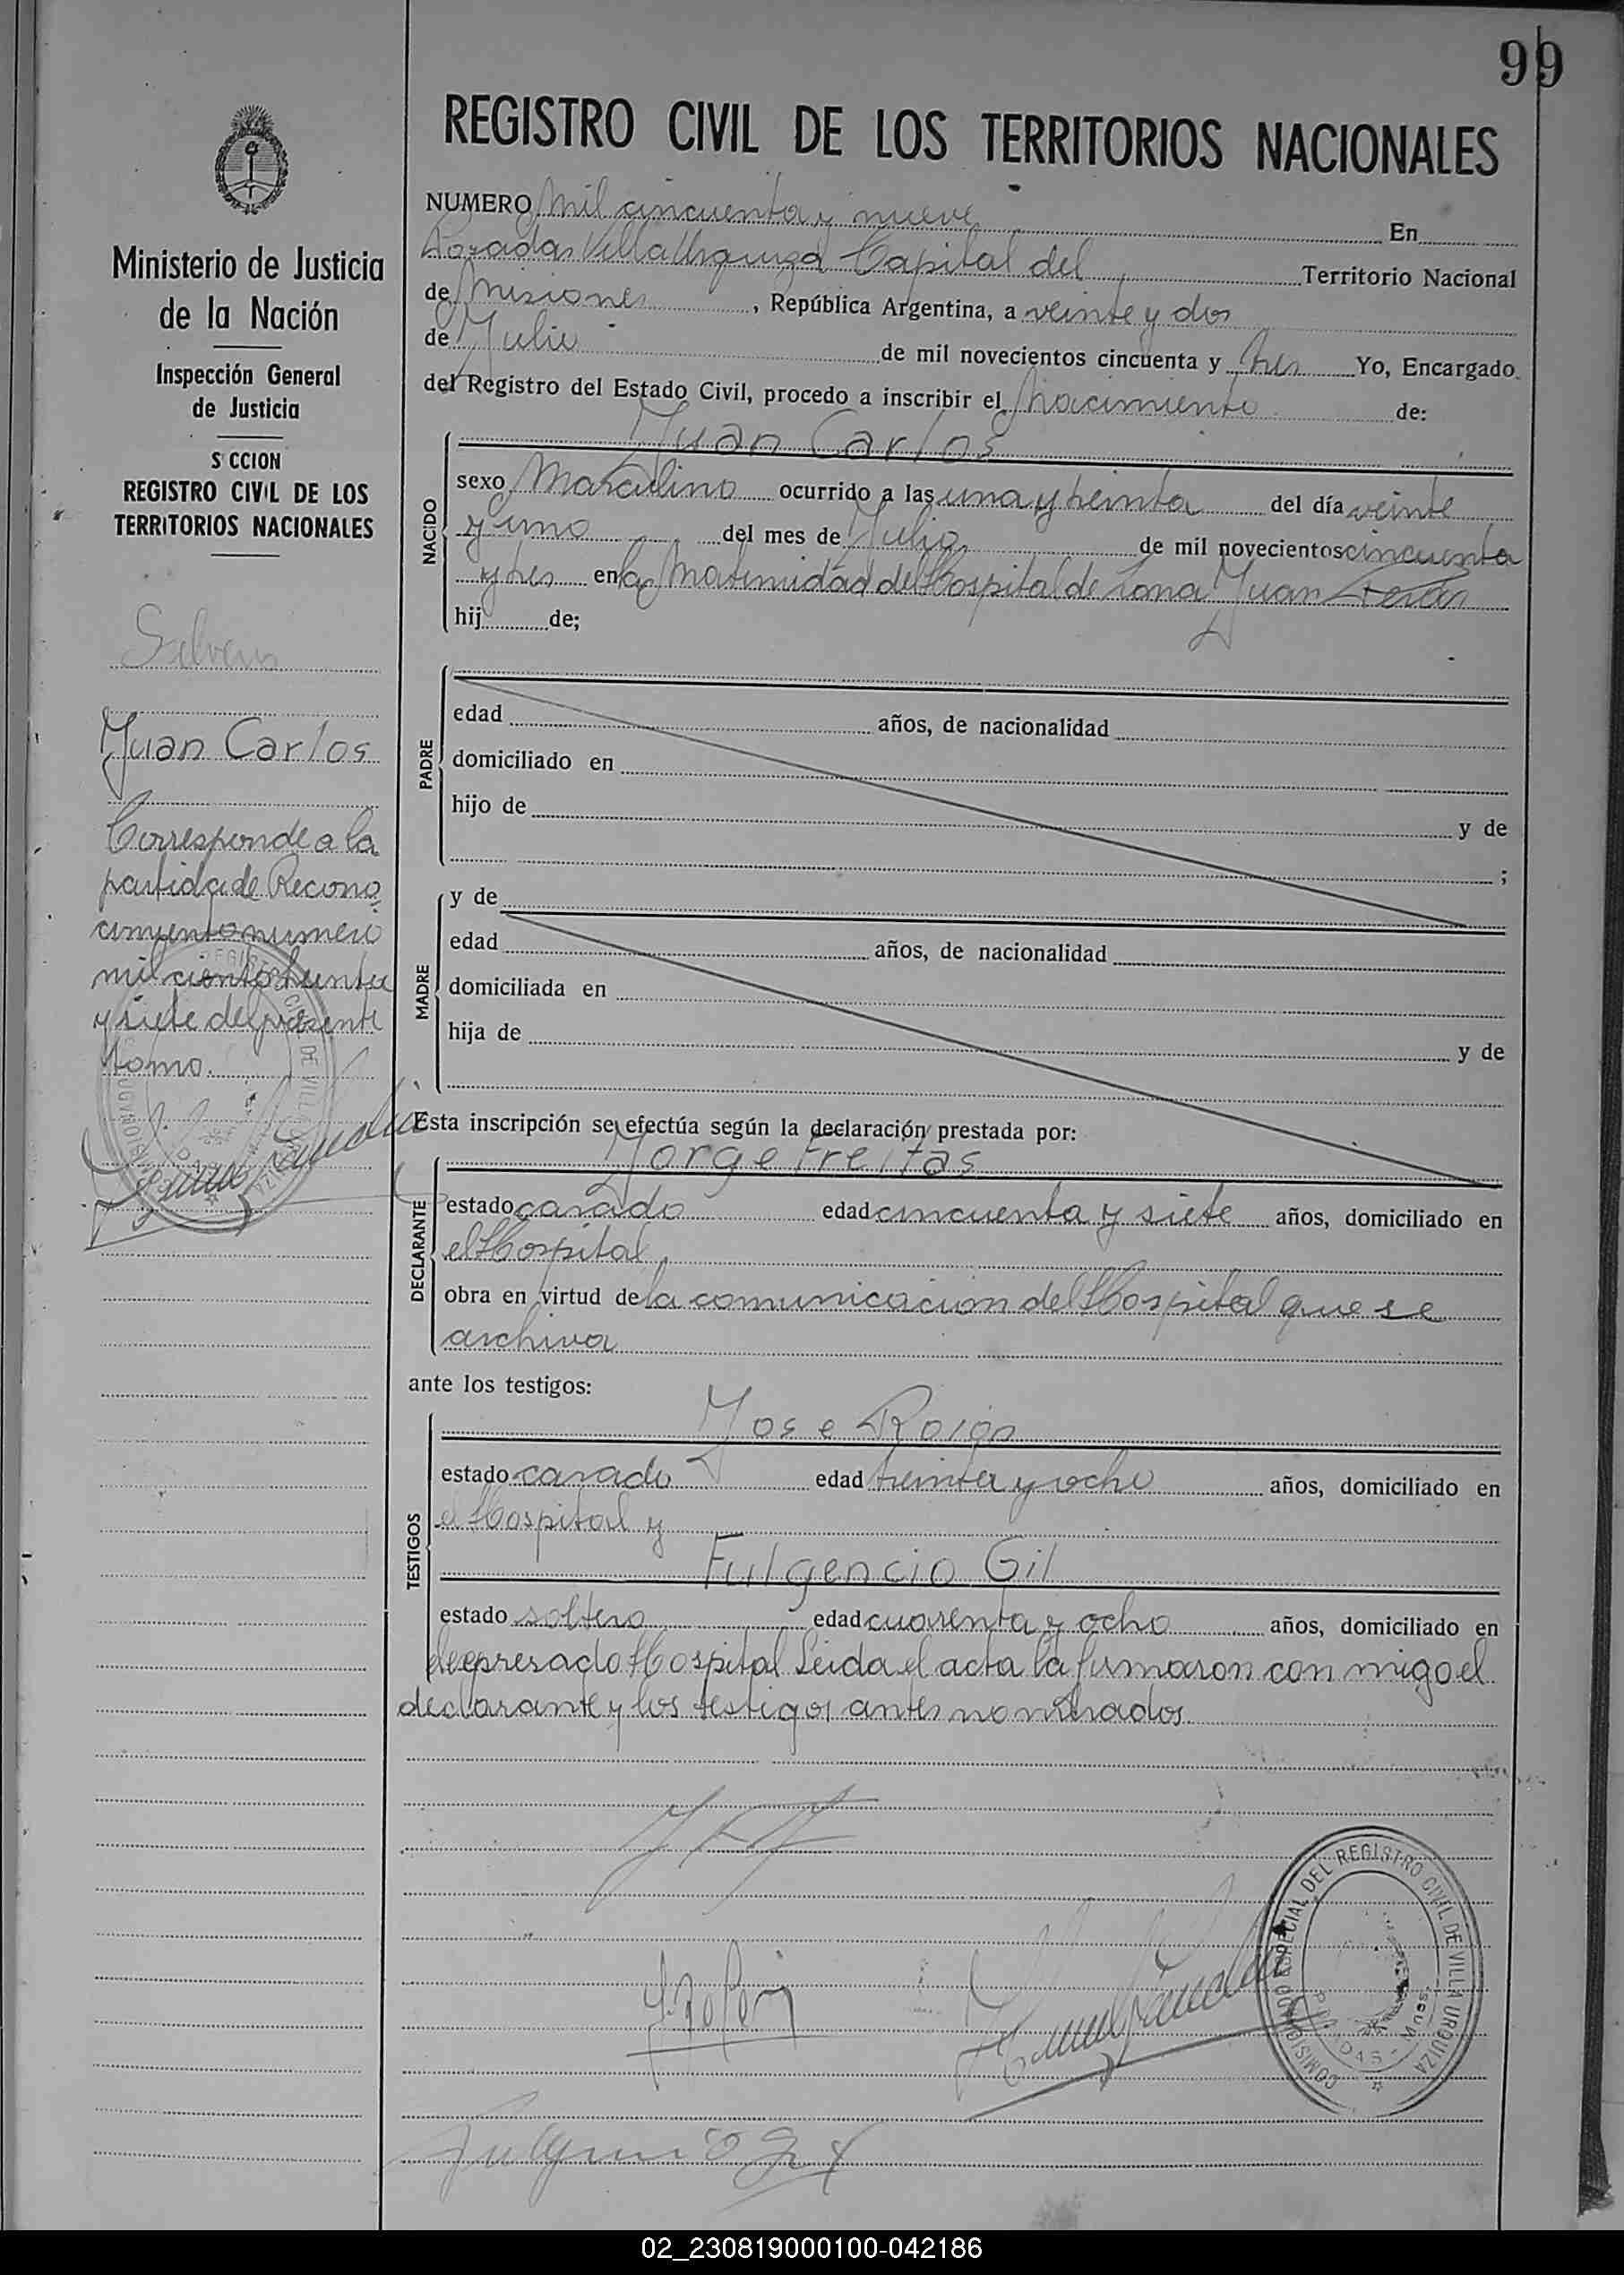 99
REGISTRO CIVIL DE LOS TERRITORIOS NACIONALES
NUMERO Mil cincuenta y nueve En
Posadas Villa Urquiza Capital del Territorio Nacional
de Misiones, República Argentina, a veinte y dos
de Julio de mil novecientos cincuenta y tres Yo, Encargado
del Registro del Estado Civil, procedo a inscribir el Nacimiento de:
NACIDO
Juan Carlos
sexo Masculino ocurrido a las una y treinta del día veinte
y uno del mes de Julio de mil novecientos cincuenta
y tres en la Maternidad del Hospital de Zona Juan Perón
hij de;
PADRE
edad años, de nacionalidad
domiciliado en
hijo de y de
;
MADRE
y de
edad años, de nacionalidad
domiciliada en
hija de y de
Esta inscripción se efectúa según la declaración prestada por:
DECLARANTE
Jorge Freitas
estado casado edad cincuenta y siete años, domiciliado en
el Hospital
obra en virtud de la comunicacion del Hospital que se
archiva
ante los testigos:
TESTIGOS
Jose Rojas
estado casado edad treinta y ocho años, domiciliado en
el Hospital y
Fulgencio Gil
estado soltero edad cuarenta y ocho años, domiciliado en
el expresado Hospital Leida el acta la firmaron con migo el
declarante y los testigos antes nombrados
COMISION ESPECIAL DEL REGISTRO CIVIL DE VILLA URQUIZA
Ministerio de Justicia
de la Nación
Inspección General
de Justicia
S CCION
REGISTRO CIVIL DE LOS
TERRITORIOS NACIONALES
Juan Carlos
Corresponde a la
partida de Recono
cimiento numero
mil ciento treinta
y siete del presente
tomo.
02_230819000100-042186